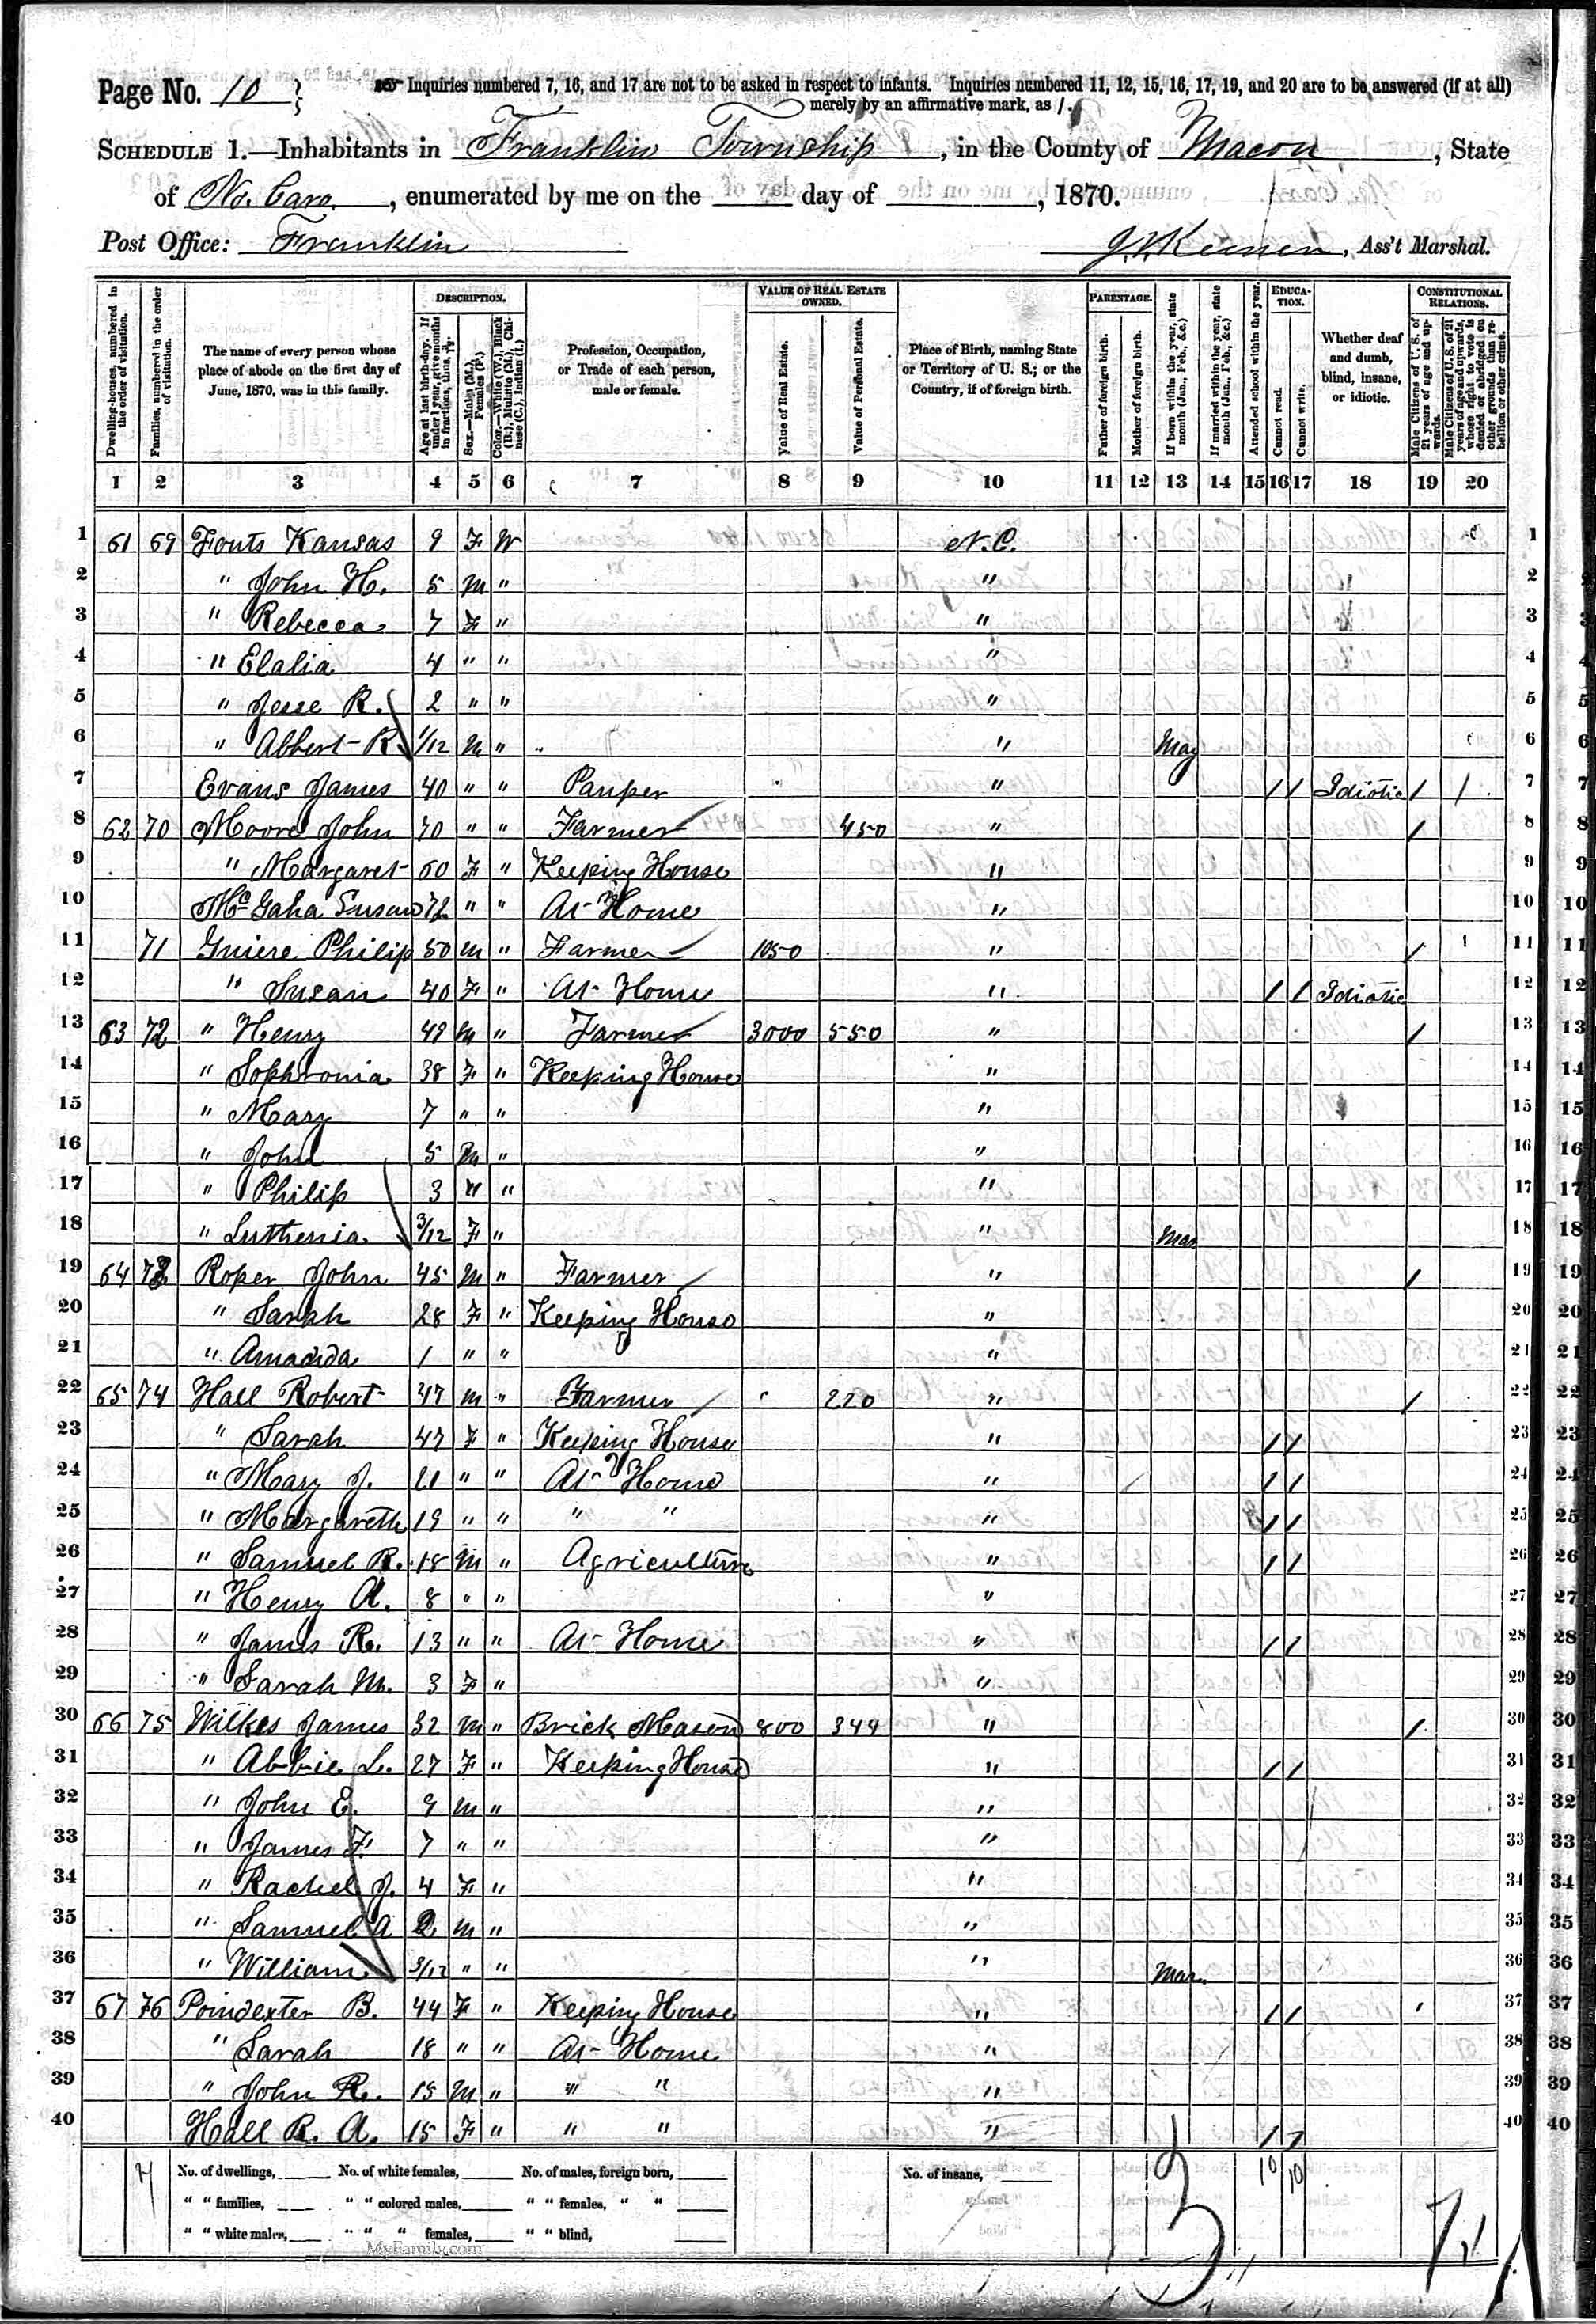 Page No. 10 } Inquiries numbered 7, 16, and 17 are not to be asked in respect to infants. Inquiries numbered 11, 12, 15, 16, 17, 19, and 20 are to be answered (if at all)
merely by an affirmative mark, as /.
SCHEDULE 1.—Inhabitants in Franklin Township, in the County of Macon, State
of No. Caro., enumerated by me on the day of , 1870.
Post Office: Franklin
Ass't Marshal.
Dwelling-houses, numbered in the order of visitation.
Families, numbered in the order of visitation.
The name of every person whose place of abode on the first day of June, 1870, was in this family.
DESCRIPTION.
Age at last birth-day. If under 1 year, give months in fractions, thus, 3/12.
Sex.—Males (M.), Females (F.)
Color.—White (W.), Black (B.), Mulatto (M.), Chinese (C.), Indian (I.)
Profession, Occupation, or Trade of each person, male or female.
VALUE OF REAL ESTATE OWNED.
Value of Real Estate.
Value of Personal Estate.
Place of Birth, naming State or Territory of U. S.; or the Country, if of foreign birth.
PARENTAGE.
Father of foreign birth.
Mother of foreign birth.
If born within the year, state month (Jan., Feb., &c.)
If married within the year, state month (Jan., Feb., &c.)
Attended school within the year.
EDUCATION.
Cannot read.
Cannot write.
Whether deaf and dumb, blind, insane, or idiotic.
CONSTITUTIONAL RELATIONS.
Male Citizens of U. S. of 21 years of age and upwards.
Male Citizens of U. S. of 21 years of age and upwards, whose right to vote is denied or abridged on other grounds than rebellion or other crime.
1 2 3 4 5 6 7 8 9 10 11 12 13 14 15 16 17 18 19 20
1 61 69 Fouts Kansas 9 F W N.C. 1
2 " John H. 5 M " " 2
3 " Rebecca 7 F " " 3
4 " Elalia 4 " " " 4
5 " Jesse R. 2 " " " 5
6 " Albert R. 1/12 M " " May 6
7 Evans James 40 " " Pauper " / / Idiotic / / 7
8 62 70 Moore John 70 " " Farmer 450 " / 8
9 " Margaret 60 F " Keeping House " 9
10 McGaha Susan 72 " " At Home " 10
11 71 Guiere Philip 50 M " Farmer 1050 " / 11
12 " Susan 40 F " At Home " / / Idiotic 12
13 63 72 " Henry 49 M " Farmer 3000 550 " / 13
14 " Sophronia 38 F " Keeping House " 14
15 " Mary 7 " " " 15
16 " John 5 M " " 16
17 " Philip 3 " " " 17
18 " Luthenia 3/12 F " " Mar 18
19 64 73 Roper John 45 M " Farmer " / 19
20 " Sarah 28 F " Keeping House " 20
21 " Amanda 1 " " " 21
22 65 74 Hall Robert 47 M " Farmer 220 " / 22
23 " Sarah 47 F " Keeping House " / / 23
24 " Mary J. 21 " " At Home " / / 24
25 " Margareth 19 " " " " " / / 25
26 " Samuel R. 18 M " Agriculture " / / 26
27 " Henry A. 8 " " " 27
28 " James R. 13 " " At Home " / / 28
29 " Sarah M. 3 F " " 29
30 66 75 Wilkes James 32 M " Brick Mason 800 349 " / 30
31 " Abbie L. 27 F " Keeping House " / / 31
32 " John E. 9 M " " 32
33 " James F. 7 " " " 33
34 " Rachel J. 4 F " " 34
35 " Samuel A 2 M " " 35
36 " William 3/12 " " " Mar. 36
37 67 76 Poindexter B. 44 F " Keeping House " / / 37
38 " Sarah 18 " " At Home " 38
39 " John R. 15 M " " " " 39
40 Hall R. A. 15 F " " " " / / 40
No. of dwellings, No. of white females, No. of males, foreign born, No. of insane, 3 10 10
" " families, " " colored males, " " females, " "
" " white males, " " " females, " " blind,
MyFamily.com